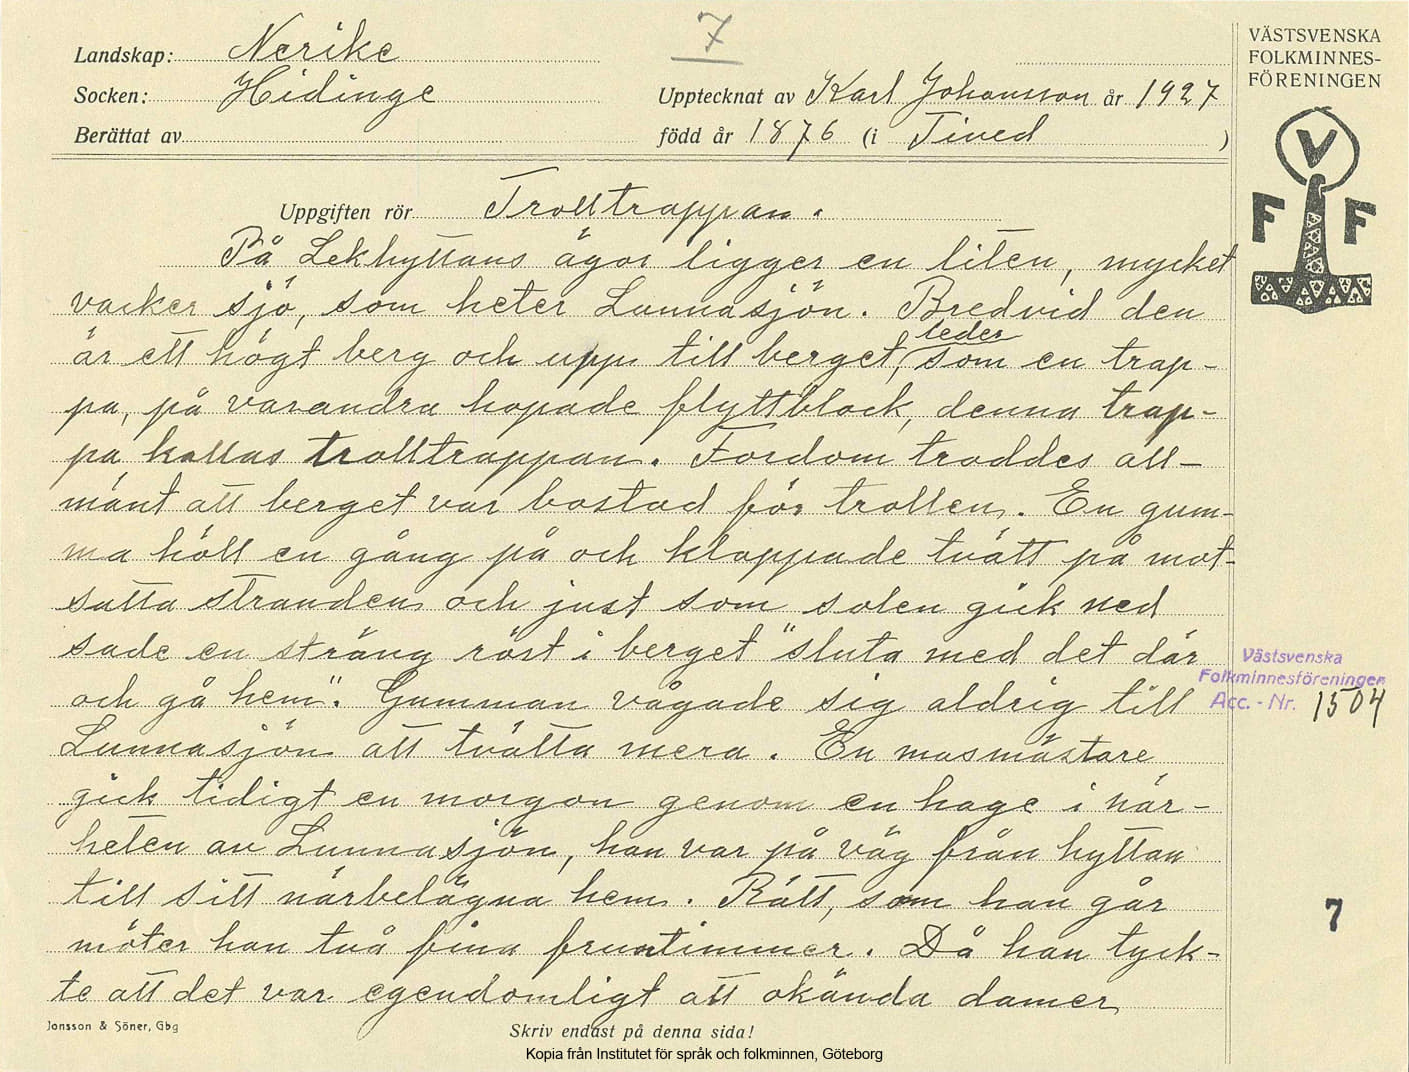 7
Landskap: Nerike
Socken: Hidinge
Upptecknat av Karl Johansson år 1927
Berättat av
född år 1876 (i Tived )
Uppgiften rör Trolltrappan.
På Lekhyttans ägor ligger en liten, mycket
vacker sjö, som heter Lunnasjön. Bredvid den
är ett högt berg och upp till berget, leder som en trap-
pa, på varandra hopade flyttblock, denna trap-
pa kallas trolltrappan. Fordom troddes all-
mänt att berget var bostad för trollen. En gum-
ma höll en gång på och klappade tvätt på mot-
satta stranden och just som solen gick ned
sade en sträng röst i berget "sluta med det där
och gå hem". Gumman vågade sig aldrig till
Lunnasjön att tvätta mera. En masmästare
gick tidigt en morgon genom en hage i när-
heten av Lunnasjön, han var på väg från hyttan
till sitt närbelägna hem. Rätt, som han går
möter han två fina fruntimmer. Då han tyck-
te att det var egendomligt att okända damer
Jonsson & Söner, Gbg
Skriv endast på denna sida!
Kopia från Institutet för språk och folkminnen, Göteborg
VÄSTSVENSKA
FOLKMINNES-
FÖRENINGEN
V
F F
Västsvenska
Folkminnesföreningen
Acc. - Nr. 1504
7